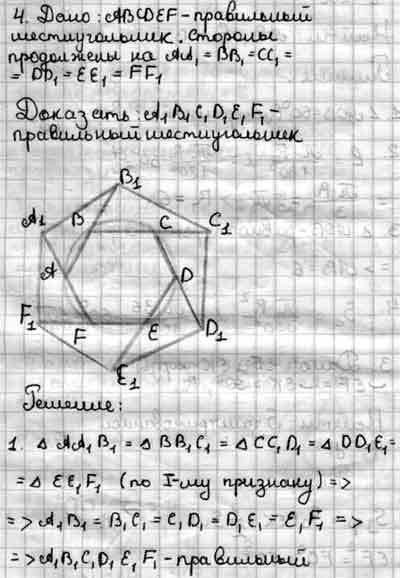 4. Дано: ABCDEF - правильный
шестиугольник. Стороны
продолжены на AA₁ = BB₁ = CC₁ =
= DD₁ = EE₁ = FF₁
Доказать: A₁B₁C₁D₁E₁F₁ -
правильный шестиугольник
B₁
A₁ B C C₁
A D
F₁ F E D₁
E₁
Решение:
1. △ AA₁B₁ = △ BB₁C₁ = △ CC₁D₁ = △ DD₁E₁ =
= △ EE₁F₁ (по I-му признаку) =>
=> A₁B₁ = B₁C₁ = C₁D₁ = D₁E₁ = E₁F₁ =>
=> A₁B₁C₁D₁E₁F₁ - правильный